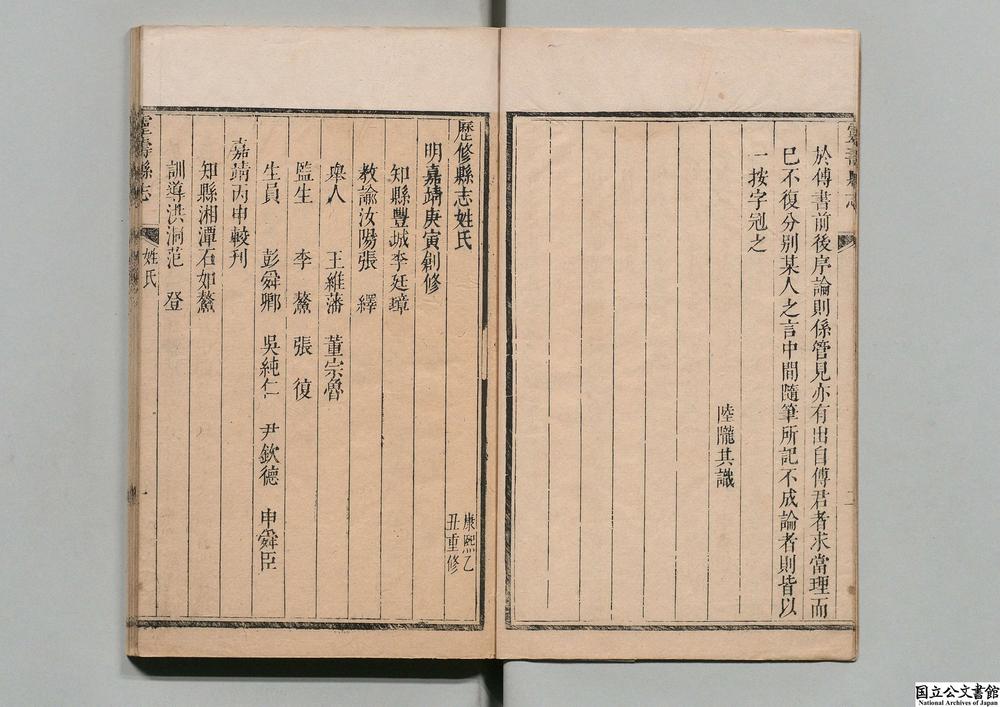 於傅書前後序論則係管見亦有出自傅君者求當理而
已不復分別某人之言中間隨筆所記不成論者則皆以
一按字冠之
陸隴其識
歷修縣志姓氏
康熙乙
丑重修
明嘉靖庚寅創修
知縣豐城李廷璋
教諭汝陽張　繹
舉人　王維藩　董宗魯
監生　李　鰲　張　復
生員　彭舜卿　吳純仁　尹欽德　申舜臣
嘉靖丙申較刊
知縣湘潭石如鰲
訓導洪洞范　登
靈壽縣志
姓氏
一
国立公文書館
National Archives of Japan